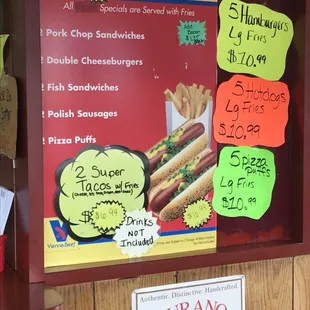 All Specials are Served with Fries
2 Pork Chop Sandwiches
2 Double Cheeseburgers
2 Fish Sandwiches
2 Polish Sausages
2 Pizza Puffs
Add
Bacon
2 Super
Tacos w/ Fries
$6.99
$6.99
Drinks
NOT
Included
Vienna Beef
5 Hamburgers
Lg Fries
$10.99
5 Hotdogs
Lg Fries
$10.99
5 pizza
puffs
Lg Fries
$10.99
Authentic. Distinctive. Handcrafted.